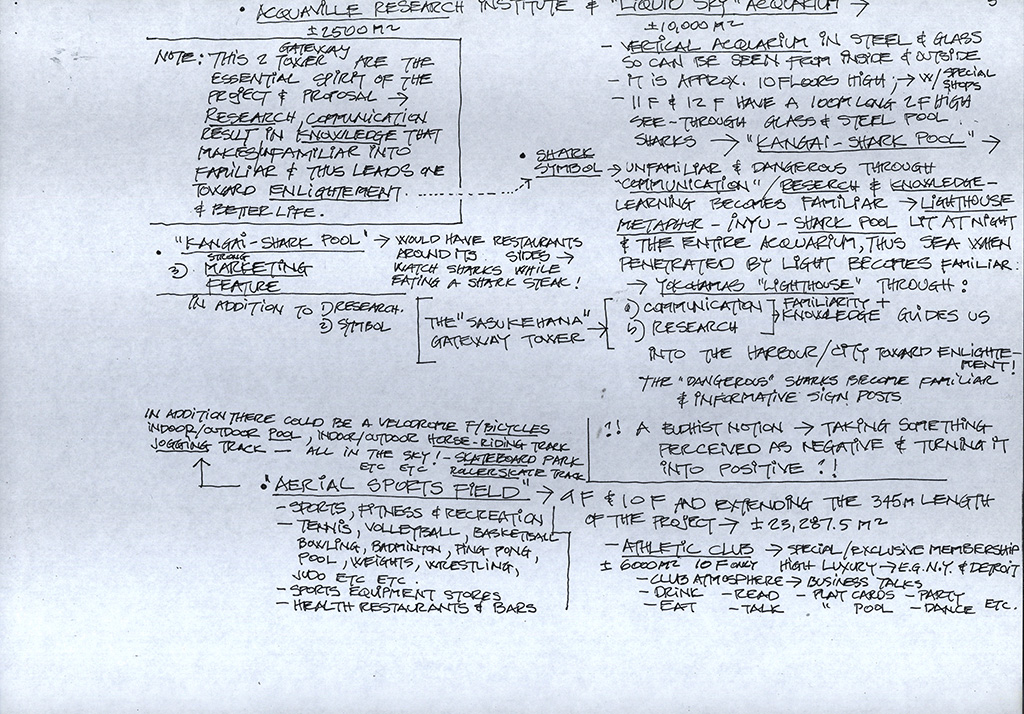 • ACQUAVILLE RESEARCH INSTITUTE & "LIQUID SKY" ACQUARIUM →
±2500 M2
±10,000 M2
NOTE: THIS 2 GATEWAY TOWER ARE THE
ESSENTIAL SPIRIT OF THE
PROJECT & PROPOSAL →
RESEARCH, COMMUNICATION
RESULT IN KNOWLEDGE THAT
MAKES UNFAMILIAR INTO
FAMILIAR & THUS LEADS ONE
TOWARD ENLIGHTEMENT
& BETTER LIFE.
- VERTICAL ACQUARIUM IN STEEL & GLASS
SO CAN BE SEEN FROM INSIDE & OUTSIDE
- IT IS APPROX. 10 FLOORS HIGH, → W/ SPECIAL SHOPS
- 11 F & 12 F HAVE A 100M LONG 2F HIGH
SEE-THROUGH GLASS & STEEL POOL...
SHARKS → "KANGAI-SHARK POOL" →
• SHARK SYMBOL → UNFAMILIAR & DANGEROUS THROUGH
"COMMUNICATION" / RESERCH & KNOWLEDGE-
LEARNING BECOMES FAMILIAR → LIGHTHOUSE
METAPHOR - INYU - SHARK POOL LIT AT NIGHT
& THE ENTIRE ACQUARIUM, THUS SEA WHEN
PENETRATED BY LIGHT BECOMES FAMILIAR:
→ YOKOHAMAS "LIGHTHOUSE" THROUGH:
• "KANGAI-SHARK POOL" → WOULD HAVE RESTAURANTS
AROUND ITS SIDES →
WATCH SHARKS WHILE
EATING A SHARK STEAK!
3) STRONG MARKETING
FEATURE
IN ADDITION TO 1) RESEARCH.
2) SYMBOL
THE "SASUKEHANA"
GATEWAY TOWER →
a) COMMUNICATION
b) RESEARCH
→ FAMILIARITY +
KNOWLEDGE GUIDES US
INTO THE HARBOUR/CITY TOWARD ENLIGHTEMENT!
THE "DANGEROUS" SHARKS BECOME FAMILIAR
& INFORMATIVE SIGN POSTS
?!! A BUDHIST NOTION → TAKING SOMETHING
PERCEIVED AS NEGATIVE & TURNING IT
INTO POSITIVE ?!
IN ADDITION THERE COULD BE A VELODROME F/BICYCLES
INDOOR/OUTDOOR POOL, INDOOR/OUTDOOR HORSE-RIDING TRARK
JOGGING TRACK — ALL IN THE SKY! - SKATEBOARD PARK
ETC ETC ROLLERSKATE TRACK
• "AERIAL SPORTS FIELD" → 9F & 10 F AND EXTENDING THE 345M LENGTH
OF THE PROJECT → ±23,287.5 M2
- SPORTS, FITNESS & RECREATION
- TENNIS, VOLLEYBALL, BASKETBALL
BOWLING, BADMINTON, PING PONG,
POOL, WEIGHTS, WRESTLING,
JUDO ETC ETC.
- SPORTS EQUIPMENT STORES
- HEALTH RESTAURANTS & BARS
- ATHLETIC CLUB → SPECIAL/EXCLUSIVE MEMBERSHIP
± 6000 M2 10 F ONLY HIGH LUXURY → E.G. N.Y. & DETROIT
- CLUB ATMOSPHERE → BUSINESS TALKS
- DRINK - READ - PLAY CARDS - PARTY
- EAT - TALK " POOL - DANCE ETC.